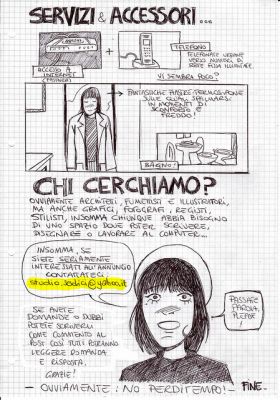 SERVIZI & ACCESSORI...
ACCESSO A
INTERNET
TELEFONO
TELEFONATE
VERSO NUMERI DI
VI SEMBRA POCO?
FANTASTICHE
SULLE QUALI
IN MOMENTI DI
SCONFORTO E
FREDDO!
BAGNO!
CHI CERCHIAMO?
OVVIAMENTE ARCHITETTI, FUMETTISTI E ILLUSTRATORI,
MA ANCHE GRAFICI, FOTOGRAFI, REGISTI,
STILISTI, INSOMMA CHIUNQUE ABBIA BISOGNO
DI UNO SPAZIO DOVE POTER SCRIVERE,
DISEGNARE O LAVORARE AL COMPUTER...
INSOMMA, SE
SIETE SERIAMENTE
INTERESSATI ALL'ANNUNCIO
CONTATTATECI
SE AVETE
DOMANDE O DUBBI
POTETE SCRIVERLI
COME COMMENTO AL
POST COSÌ TUTTI POTRANNO
LEGGERE DOMANDA
E RISPOSTA.
GRAZIE!
PASSATE
PAROLA,
PLEASE
- OVVIAMENTE: NO PERDITEMPO! -
FINE.